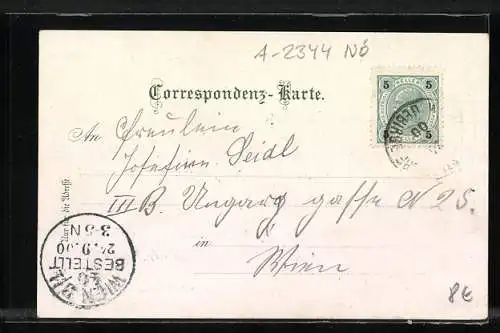 A-2344 NÖ
Correspondenz-Karte.
5 HELLER 5
5 5
An Fräulein
Josefine Seidl
III B. Ungargasse N 25.
in
Wien
Nur für die Adresse
WIEN
BESTELLT
24.9.00
3-5N
8€